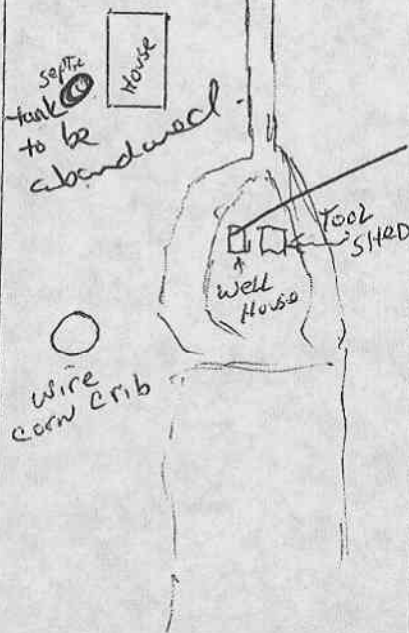 House
septic
tank
to be
abandoned
Tool
SHED
well
House
wire
corn crib